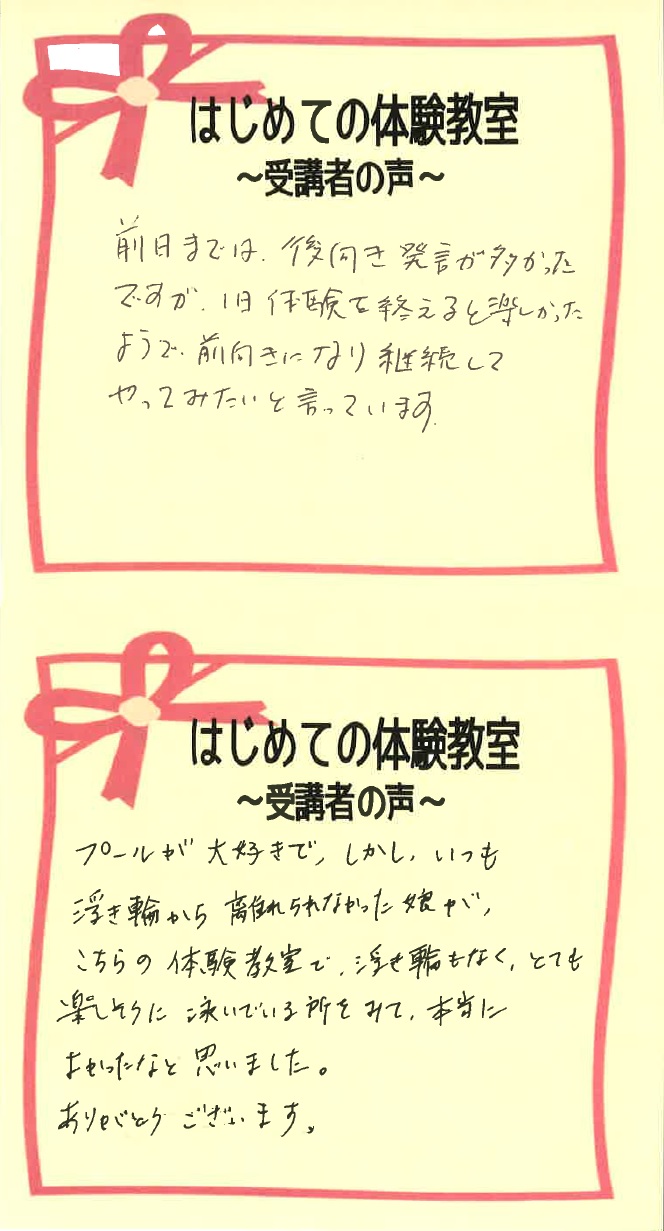 はじめての体験教室
～受講者の声～
前日までは、後向き発言が多かった
ですが、1日体験を終えると楽しかった
ようで、前向きになり継続して
やってみたいと言っています。
はじめての体験教室
～受講者の声～
プールが大好きで、しかし、いつも
浮き輪から離れられなかった娘が、
こちらの体験教室で、浮き輪もなく、とても
楽しそうに泳いでいる所をみて、本当に
よかったなと思いました。
ありがとうございます。